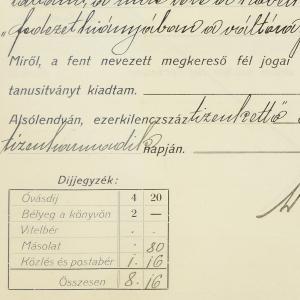 fedezet hiányjában a váltóna
Miről, a fent nevezett megkereső fél jogai
tanusitványt kiadtam.
Alsólendván, ezerkilencszáz tizenkettő
tizenharmadik napján.
Díjjegyzék:
Óvásdíj 4 20
Bélyeg a könyvön 2 —
Vitelbér . .
Másolat . 80
Közlés és postabér 1. 16
Összesen 8. 16